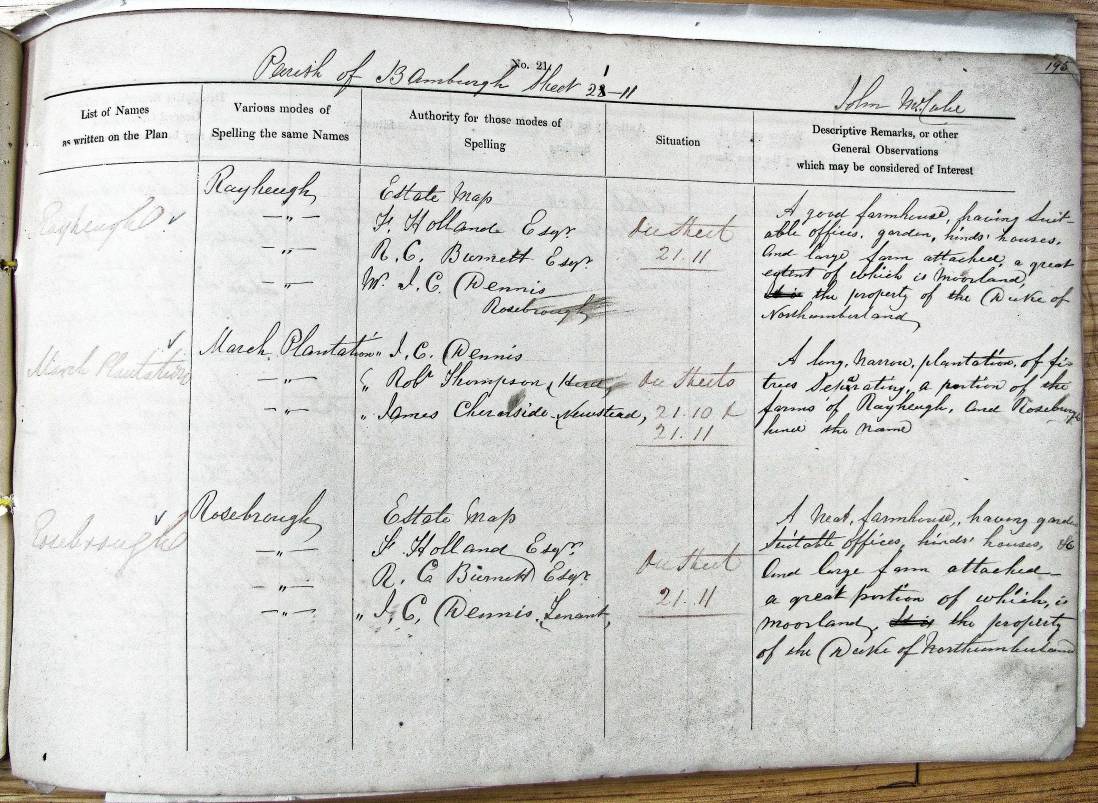 No. 21
195
Parish of Bamburgh Sheet 21-11
John McCabe
List of Names
as written on the Plan
Various modes of
Spelling the same Names
Authority for those modes of
Spelling
Situation
Descriptive Remarks, or other
General Observations
which may be considered of Interest
Rayheugh
Rayheugh
Estate Map
F. Holland Esqr.
R. C. Burnett Esqr.
W. I. C. Dennis
Rosebrough
On Sheet
21.11
A good farmhouse, having Suit-
able offices, garden, hinds' houses,
And large farm attached, a great
extent of which is Moorland,
It is the property of the Duke of
Northumberland
March Plantation
March Plantation
" I. C. Dennis
" Robt. Thompson
" James Newstead,
On Sheets
21.10 &
21.11
A long, Narrow, plantation, of fir
trees Separating, a portion of the
farms of Rayheugh, And Rosebrough
hence the Name
Rosebrough
Rosebrough
Estate Map
F. Holland Esqr.
R. C. Burnett Esqr
" I. C. Dennis, Tenant,
On Sheet
21.11
A Neat, farmhouse, having garden
Suitable offices, hinds' houses, &c
And large farm attached
a great portion of which, is
Moorland, It is the property
of the Duke of Northumberland